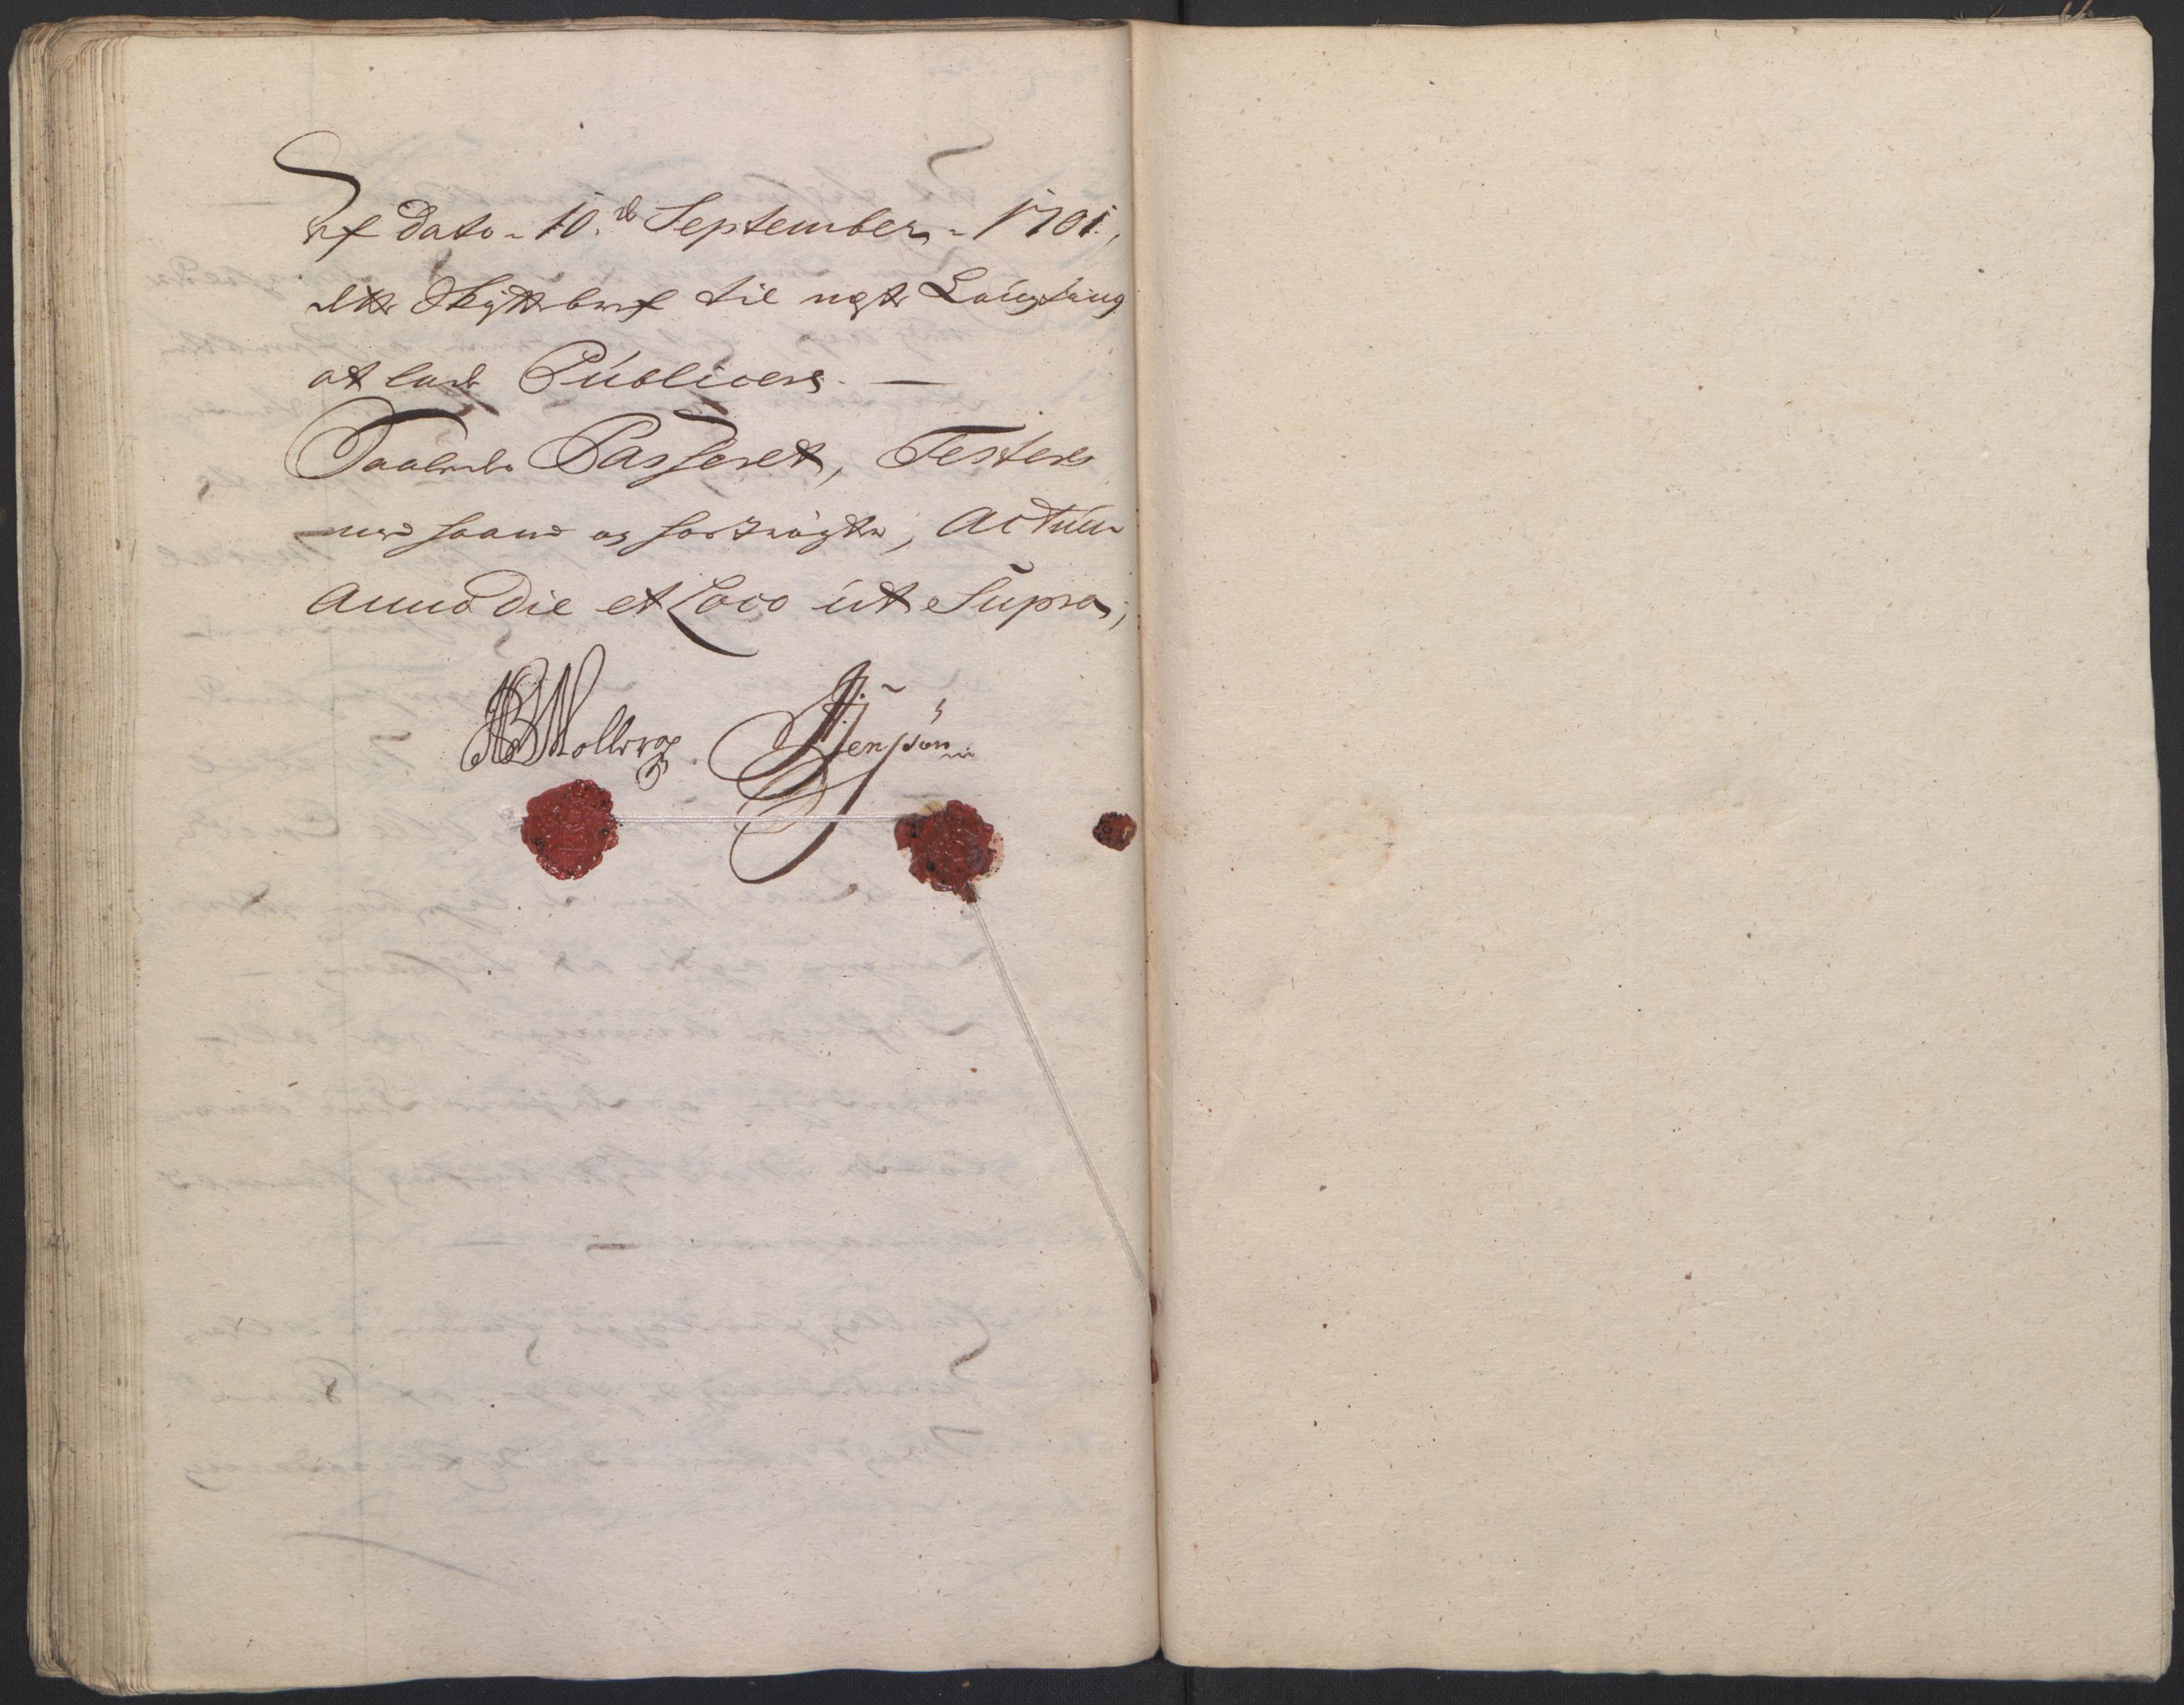 af dato 10.de September 1701,
dette Skiøttebref til neste Laugting
at lade Publicere. —
Saaledes Passeret, Testerer
med haand og Zignete, Actum
Anno Die et Loco ut Supra,
HBMollerop. JJensøn